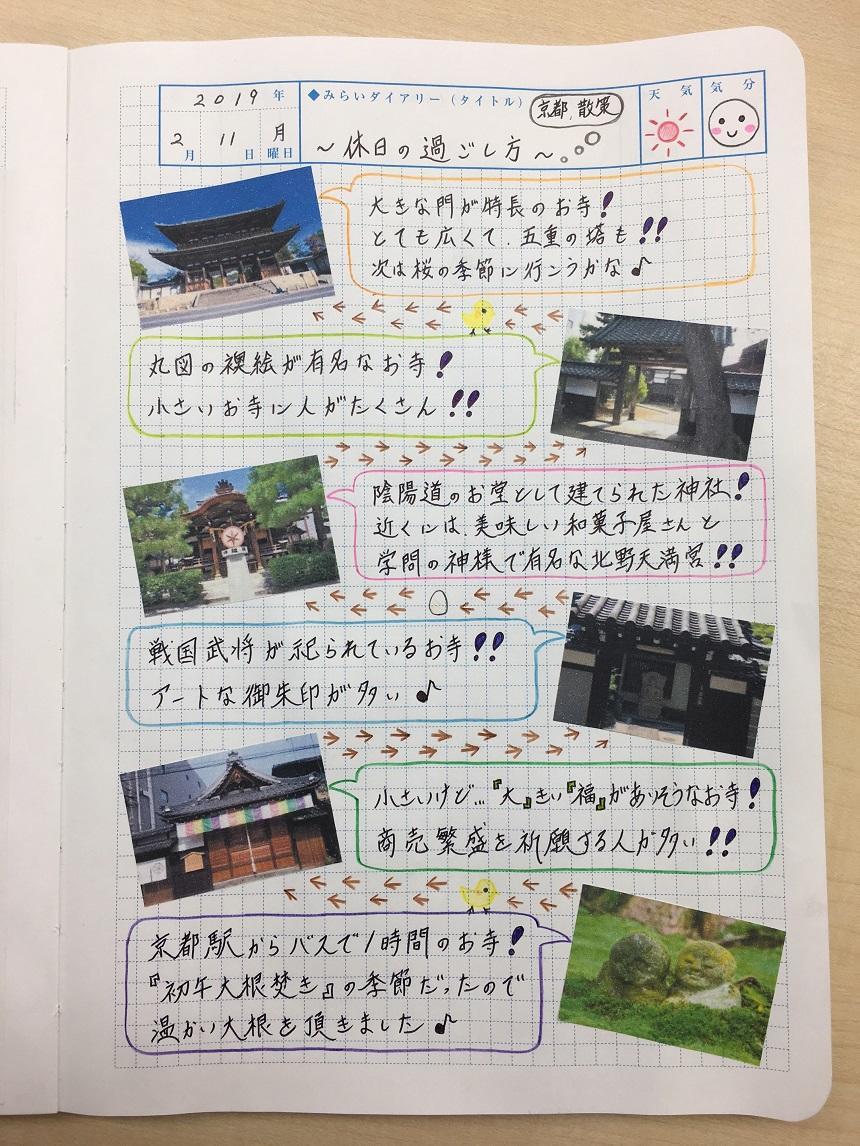 2019年
2月11日月曜日
◆みらいダイアリー(タイトル)
京都、散策
～休日の過ごし方～
天気
気分
大きな門が特長のお寺!
とても広くて、五重の塔も!!
次は桜の季節に行こうかな♪
丸図の襖絵が有名なお寺!
小さいお寺に人がたくさん!!
陰陽道のお堂として建てられた神社!
近くには、美味しい和菓子屋さんと
学問の神様で有名な北野天満宮!!
戦国武将が祀られているお寺!!
アートな御朱印が多い♪
小さいけど…『大』きい『福』がありそうなお寺!
商売繁盛を祈願する人が多い!!
京都駅からバスで1時間のお寺!
『初午大根焚き』の季節だったので
温かい大根を頂きました♪